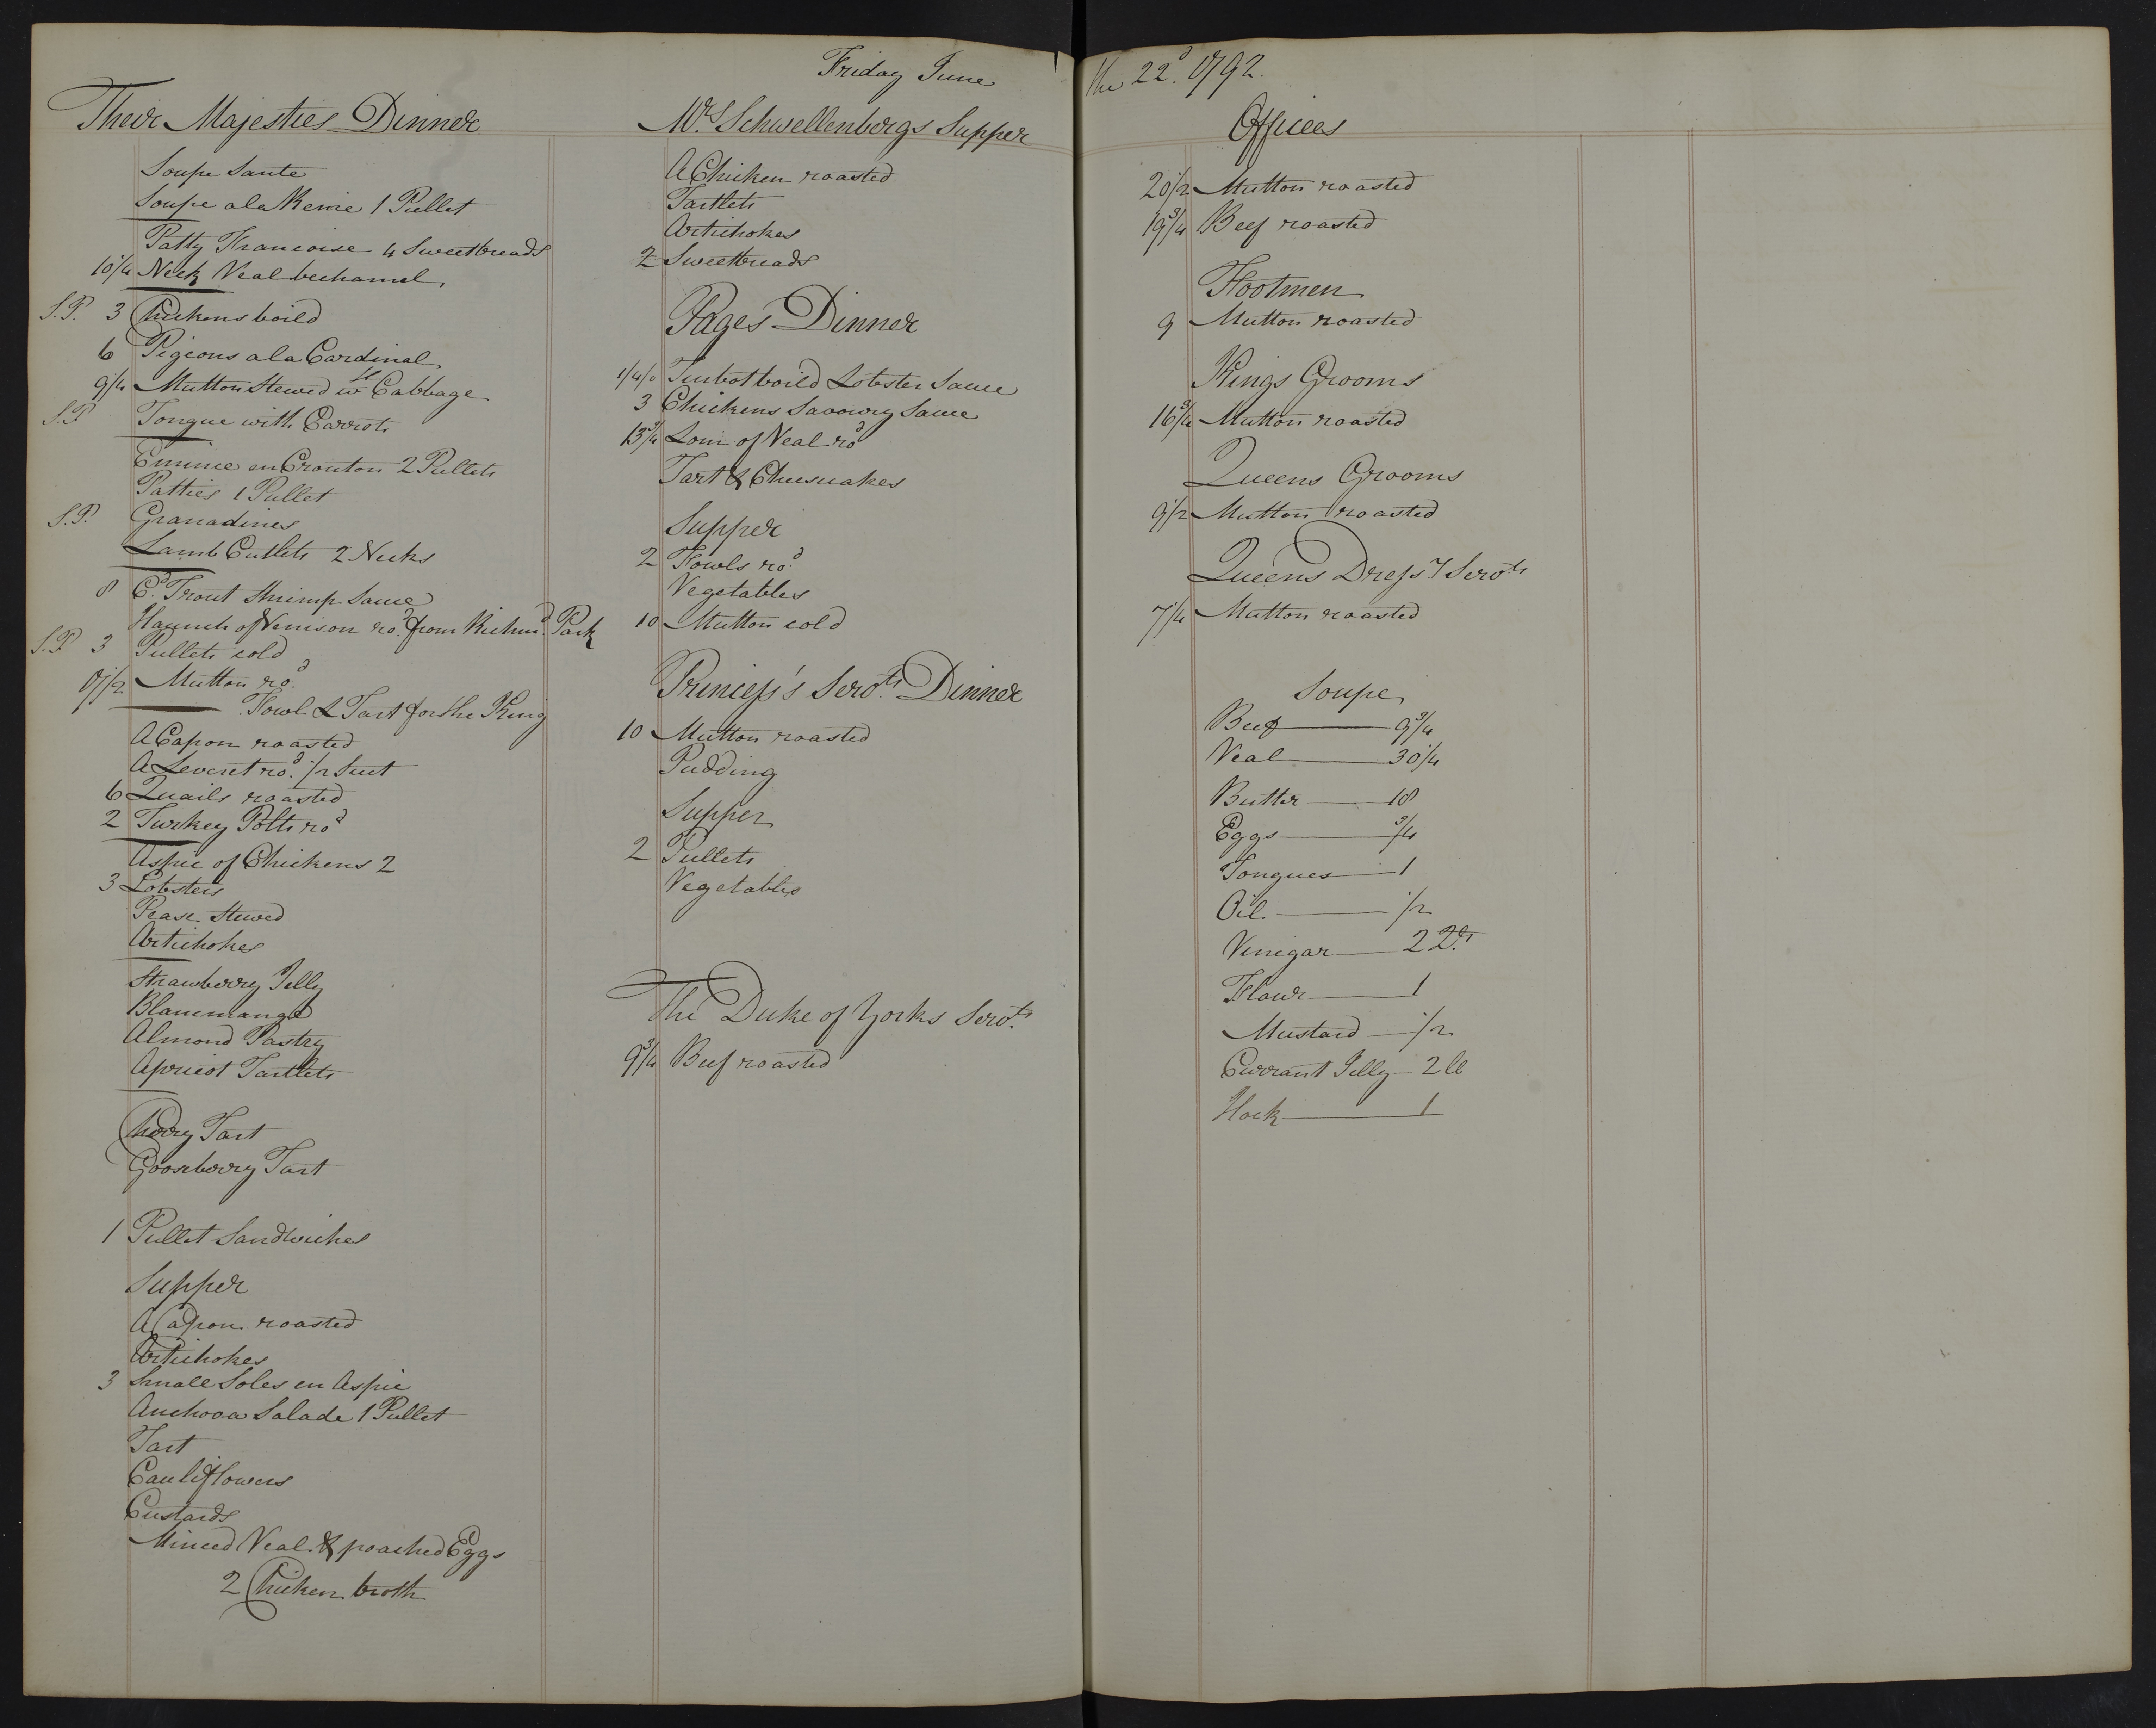 Friday June the 22d. 1792.
Their Majesties Dinner
Soupe Sante
Soupe a la Reine 1 Pullet
Patty Francoise 4 Sweetbreads
10 1/4 Neck Veal bechamel
S.P. 3 Chickens boild
6 Pigeons a la Cardinal
9 1/4 Mutton Stewed wth Cabbage
S.P. Tongue with Carrots
Emince en Crouton 2 Pullets
Patties 1 Pullet
S.P. Granadines
Lamb Cutlets 2 Necks
8 Cd. Trout Shrimp Sauce
Haunch of Venison rod. from Richmd. Park
S.P. 3 Pullets cold
Mutton rod.
Fowl & Tart for the King
A Capon roasted
A Leveret rod. 1/2 Suet
6 Quails roasted
2 Turkey Polts rod
Aspic of Chickens 2
3 Lobsters
Pease Stewed
Artichokes
Strawberry Jelly
Blanmange
Almond Pastry
Apricot Tartlets
Cherry Tart
Gooseberry Tart
1 Pullet Sandwiches
Supper
A Capon roasted
Artichokes
3 Small Soles en Aspic
Anchova Salade 1 Pullet
Tart
Cauliflowers
Custards
Minced Veal & poached Eggs
2 Chicken broth
Mrs Schwellenbergs Supper
A Chicken roasted
Tartlets
Artichokes
2 Sweetbreads
Pages Dinner
1/4/0 Turbot boild Lobster Sauce
3 Chickens Savoury Sauce
13 3/4 Loin of Veal rod
Tart & Cheescakes
Supper
2 Fowls rod.
Vegetables
10 Mutton cold
Princess's Servts. Dinner
10 Mutton roasted
Pudding
Supper
2 Pullets
Vegetables
The Duke of Yorks Servts.
9 3/4 Beef roasted
Offices
20 1/2 Mutton roasted
19 3/4 Beef roasted
Footmen
9 Mutton roasted
Kings Grooms
16 3/4 Mutton roasted
Queens Grooms
9 1/2 Mutton roasted
Queens Dressrs Servts
7 1/4 Mutton roasted
Soupe
Beef 9 3/4
Veal 30 1/4
Butter 18
Eggs 3/4
Tongues 1
Oil 1/2
Vinigar 2 Qts.
Flour 1
Mustard 1/2
Currant Jelly 2 ll
Hock 1